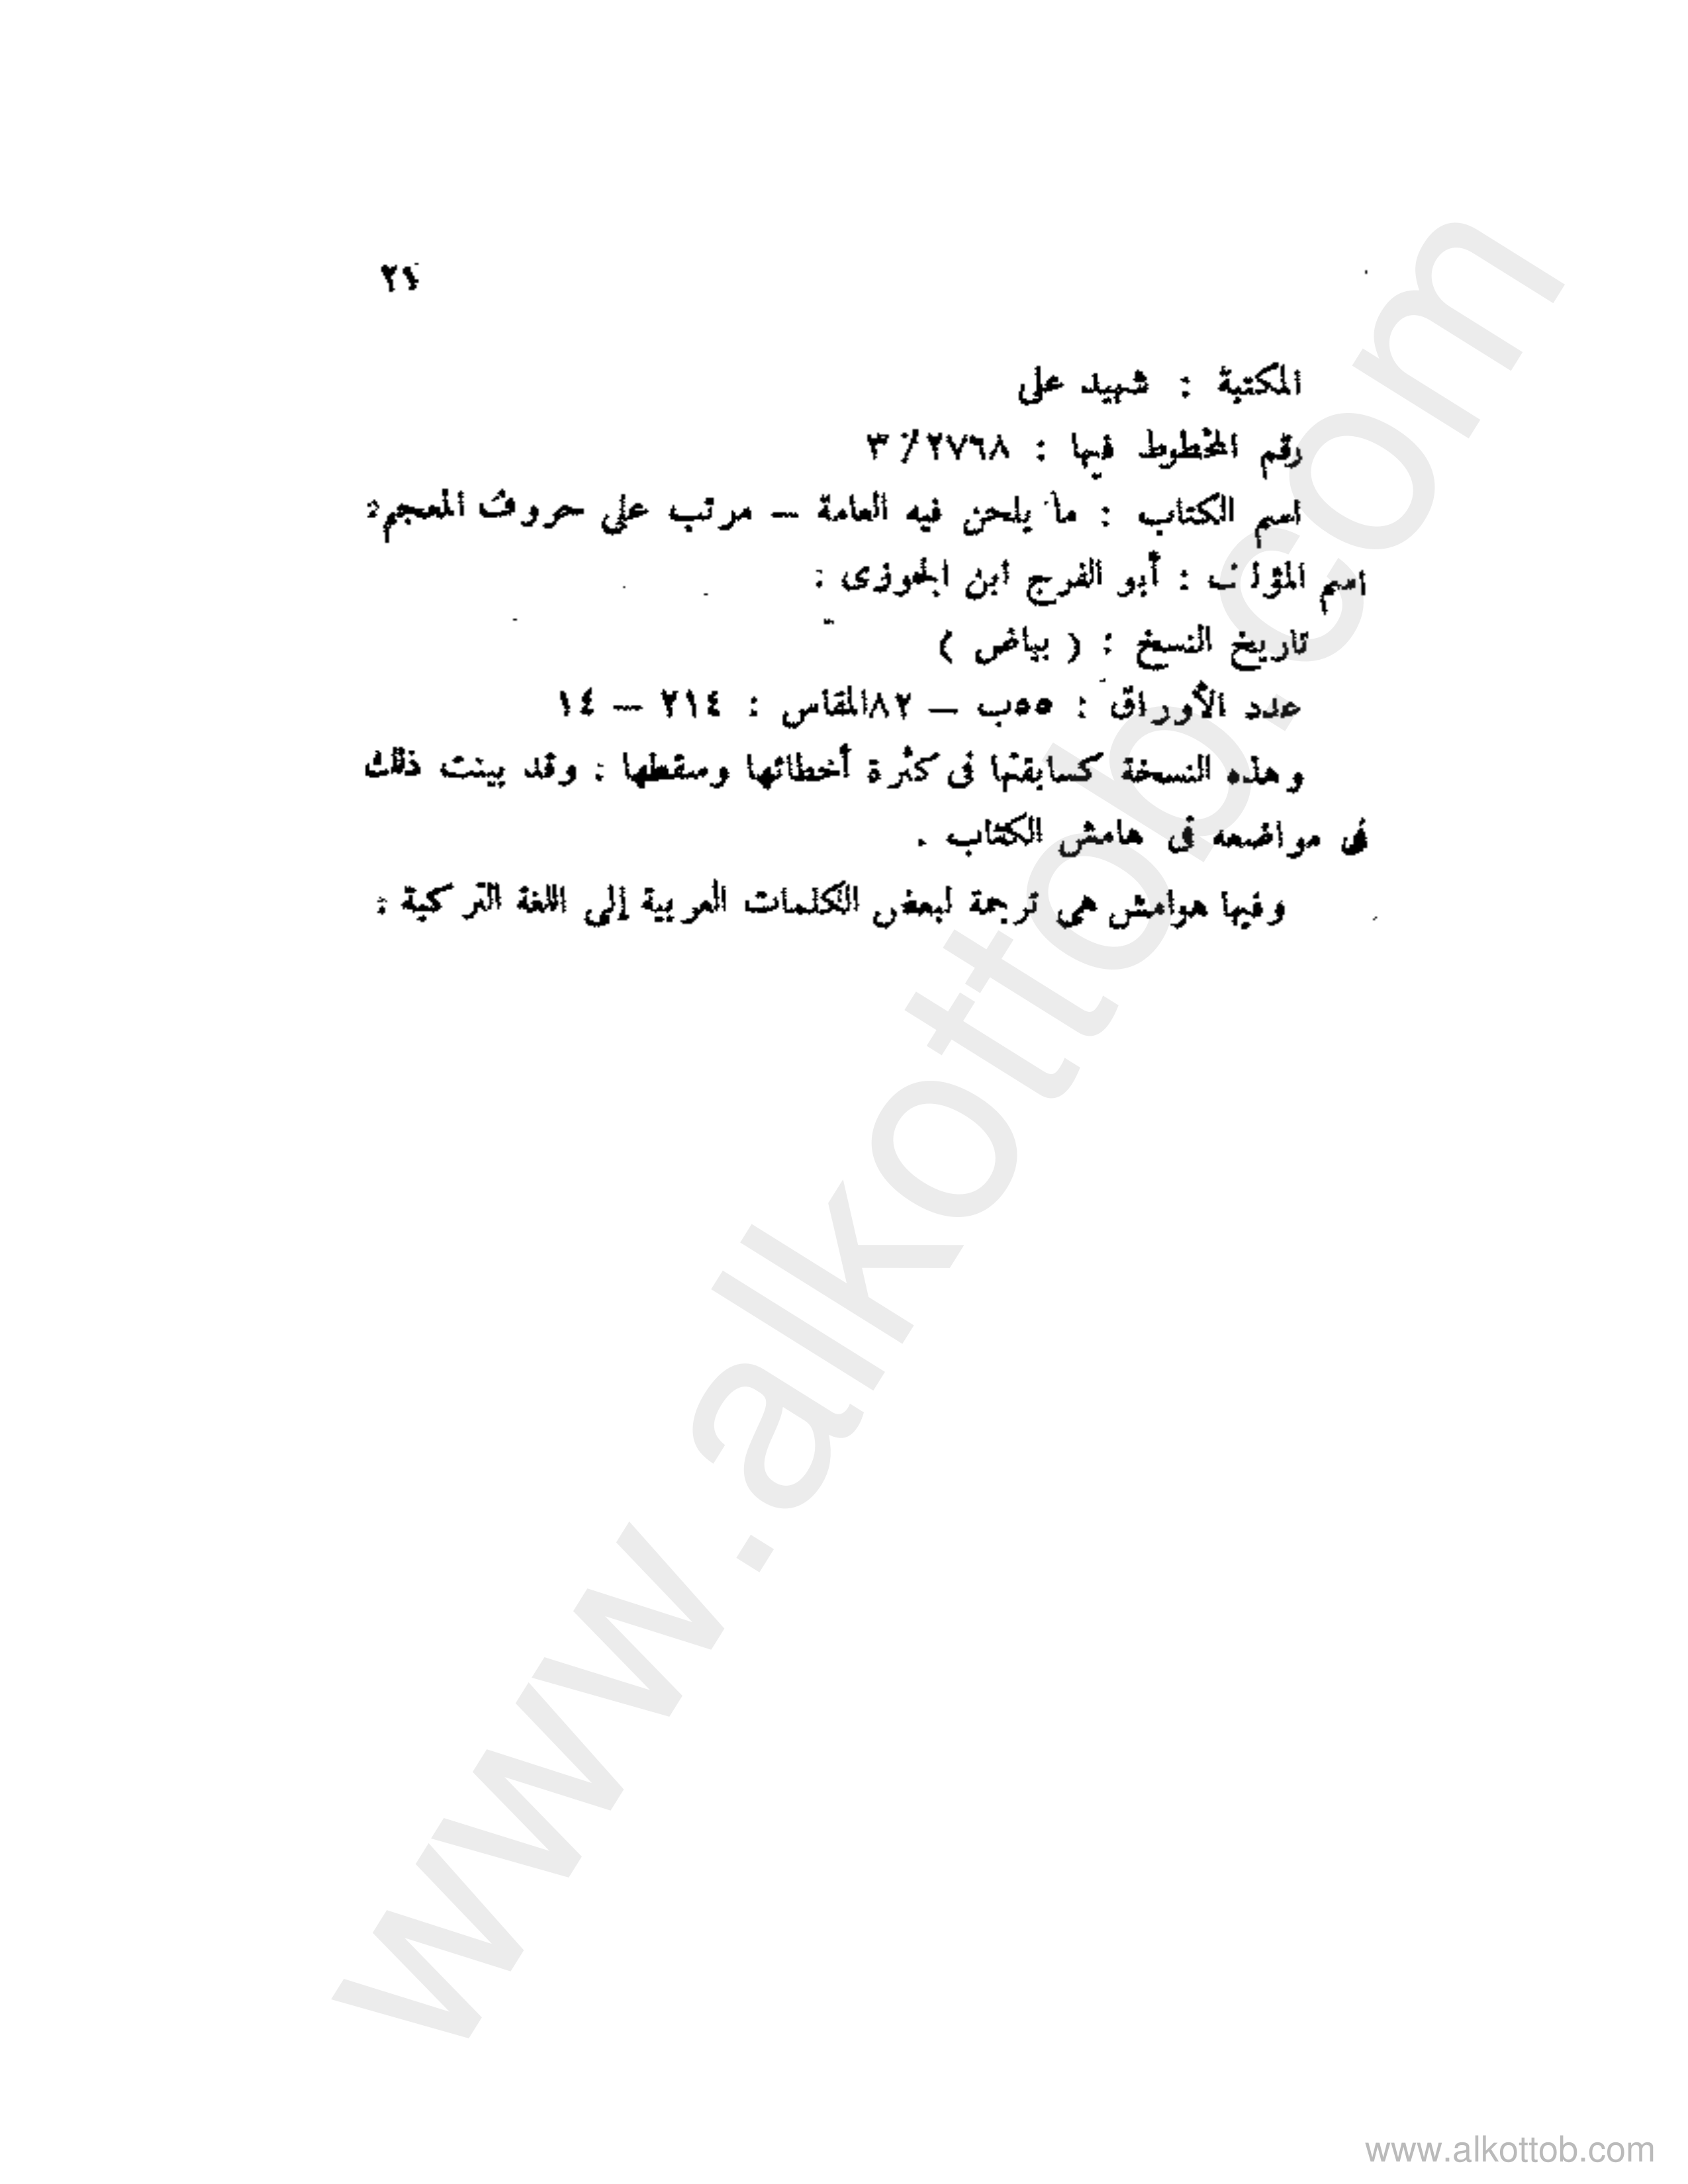 المكتبة : شهيد على
رقم المخطوط فيها : ٢٧٦٨ / ٣
اسم الكتاب : ما يلحن فيه العامة – مرتب على حروف المعجم :
اسم المؤلف : أبو الفرج ابن الجوزى :
تاريخ النسخ : ( بياض )
عدد الأوراق : ٥٥ب – ٨٢المقاس : ٢١٤ – ١٤
وهذه النسخة كسابقتها فى كثرة أخطائها وسقطها : وقد بينت ذلك
فى مواضعه فى هامش الكتاب .
وفيها هوامش هى ترجمة لبعض الكلمات العربية إلى اللغة التركية :
www.alkottob.com
www.alkottob.com